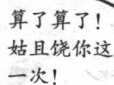 算了算了！
姑且饶你这
一次！